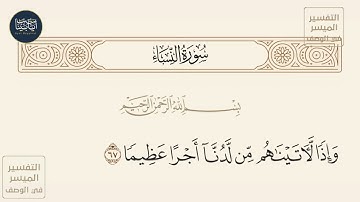 التفسير
الميسر
في الوصف
سُورَةُ النِّسَاءِ
بِسْمِ اللَّهِ الرَّحْمَٰنِ الرَّحِيمِ
وَإِذًا لَّآتَيْنَاهُم مِّن لَّدُنَّا أَجْرًا عَظِيمًا ٦٧
التفسير
الميسر
في الوصف